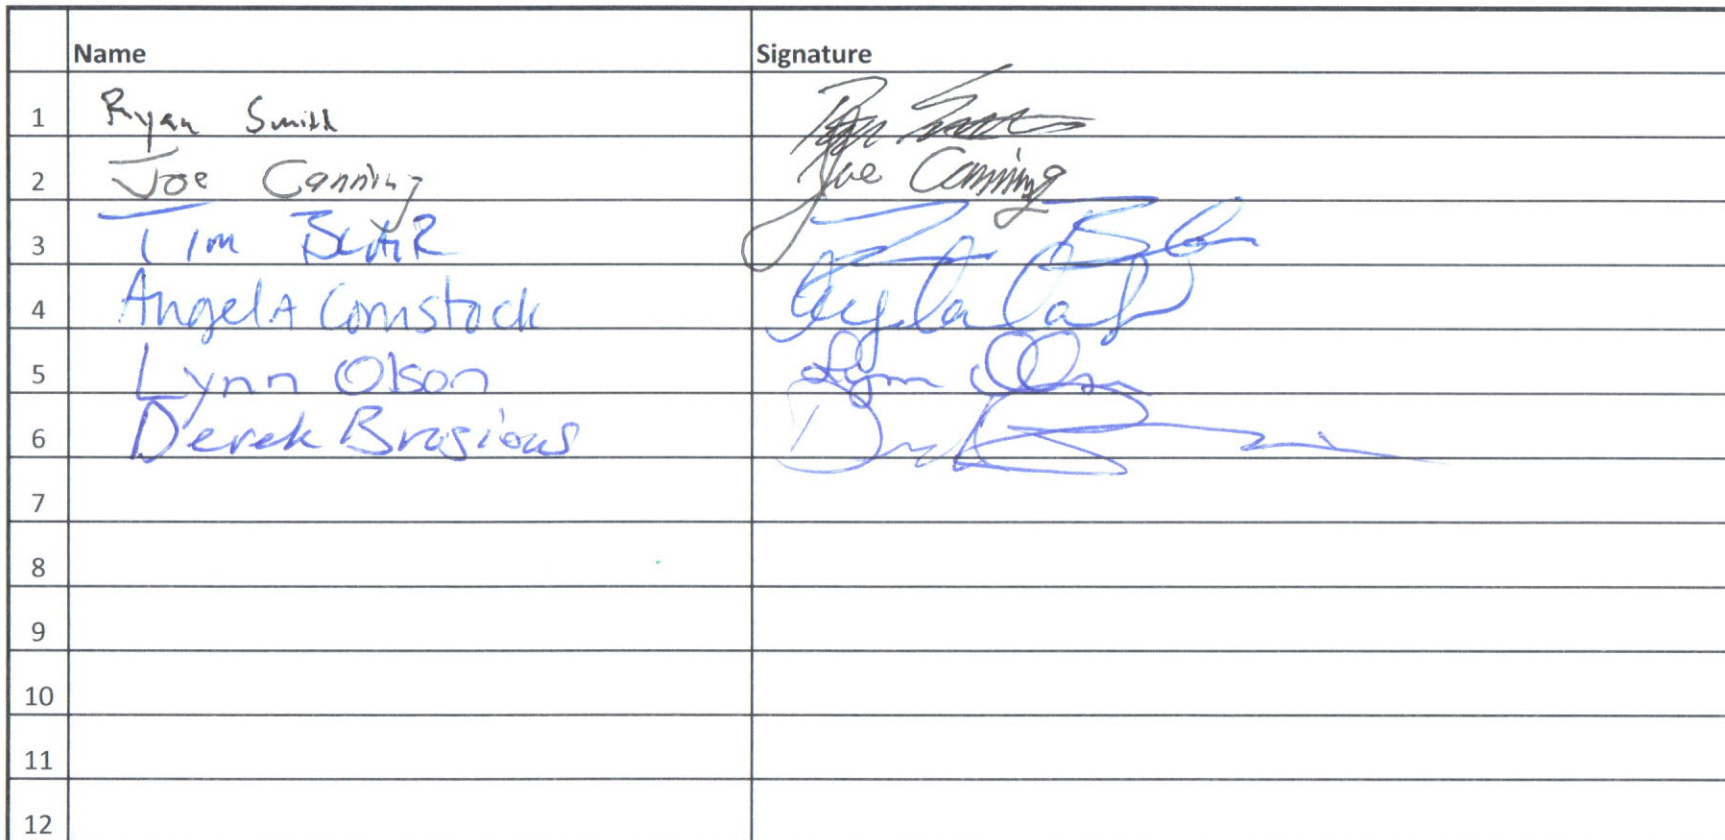 Name Signature
1 Ryan Smith
2 Joe Canning Joe Canning
3 Tim Blair
4 Angela Comstock
5 Lynn Olson Lynn Olson
6 Derek Brosious
7
8
9
10
11
12